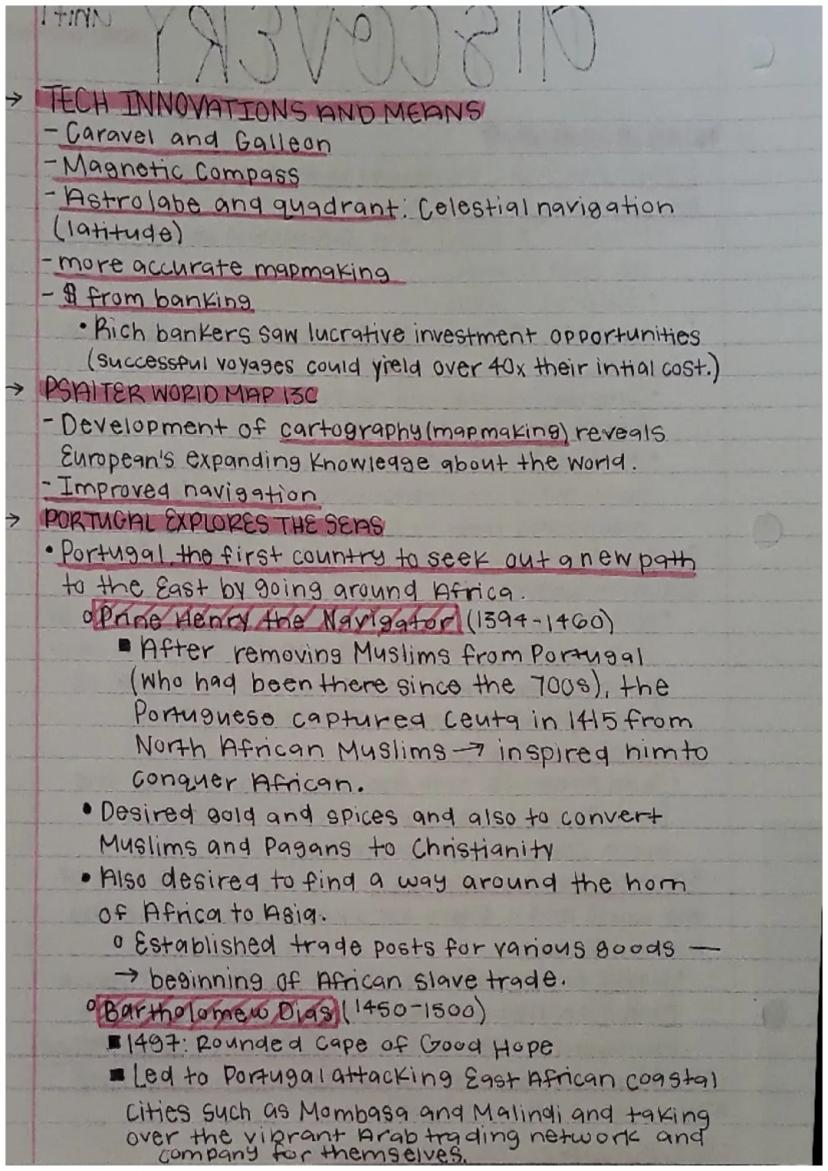 → TECH INNOVATIONS AND MEANS
- Caravel and Galleon
- Magnetic Compass
- Astrolabe and quadrant: Celestial navigation
(latitude)
- more accurate mapmaking
- $ from banking
• Rich bankers saw lucrative investment opportunities
(successful voyages could yield over 40x their intial cost.)
→ PSALTER WORLD MAP 13C
- Development of cartography (mapmaking) reveals
European's expanding knowledge about the world.
- Improved navigation
→ PORTUGAL EXPLORES THE SEAS
• Portugal, the first country to seek out a new path
to the East by going around Africa.
o Prine Henry the Navigator (1394-1460)
■ After removing Muslims from Portugal
(who had been there since the 700s), the
Portuguese captured Ceuta in 1415 from
North African Muslims → inspired him to
conquer African.
• Desired gold and spices and also to convert
Muslims and Pagans to Christianity
• Also desired to find a way around the horn
of Africa to Asia.
o Established trade posts for various goods —
→ beginning of African slave trade.
o Bartholomew Dias (1450-1500)
■ 1497: Rounded Cape of Good Hope
■ Led to Portugal attacking East African coastal
cities such as Mombasa and Malindi and taking
over the vibrant Arab trading network and
company for themselves.